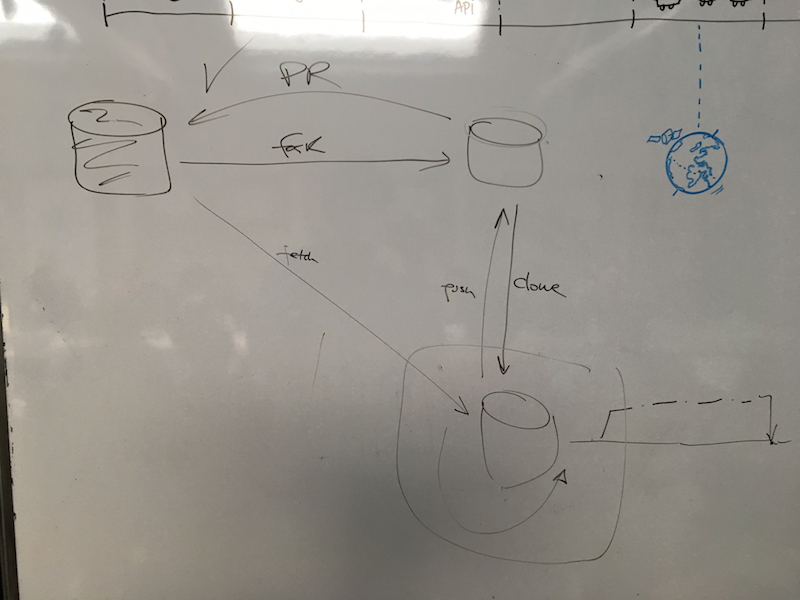 API
PR
fork
fetch
push
clone